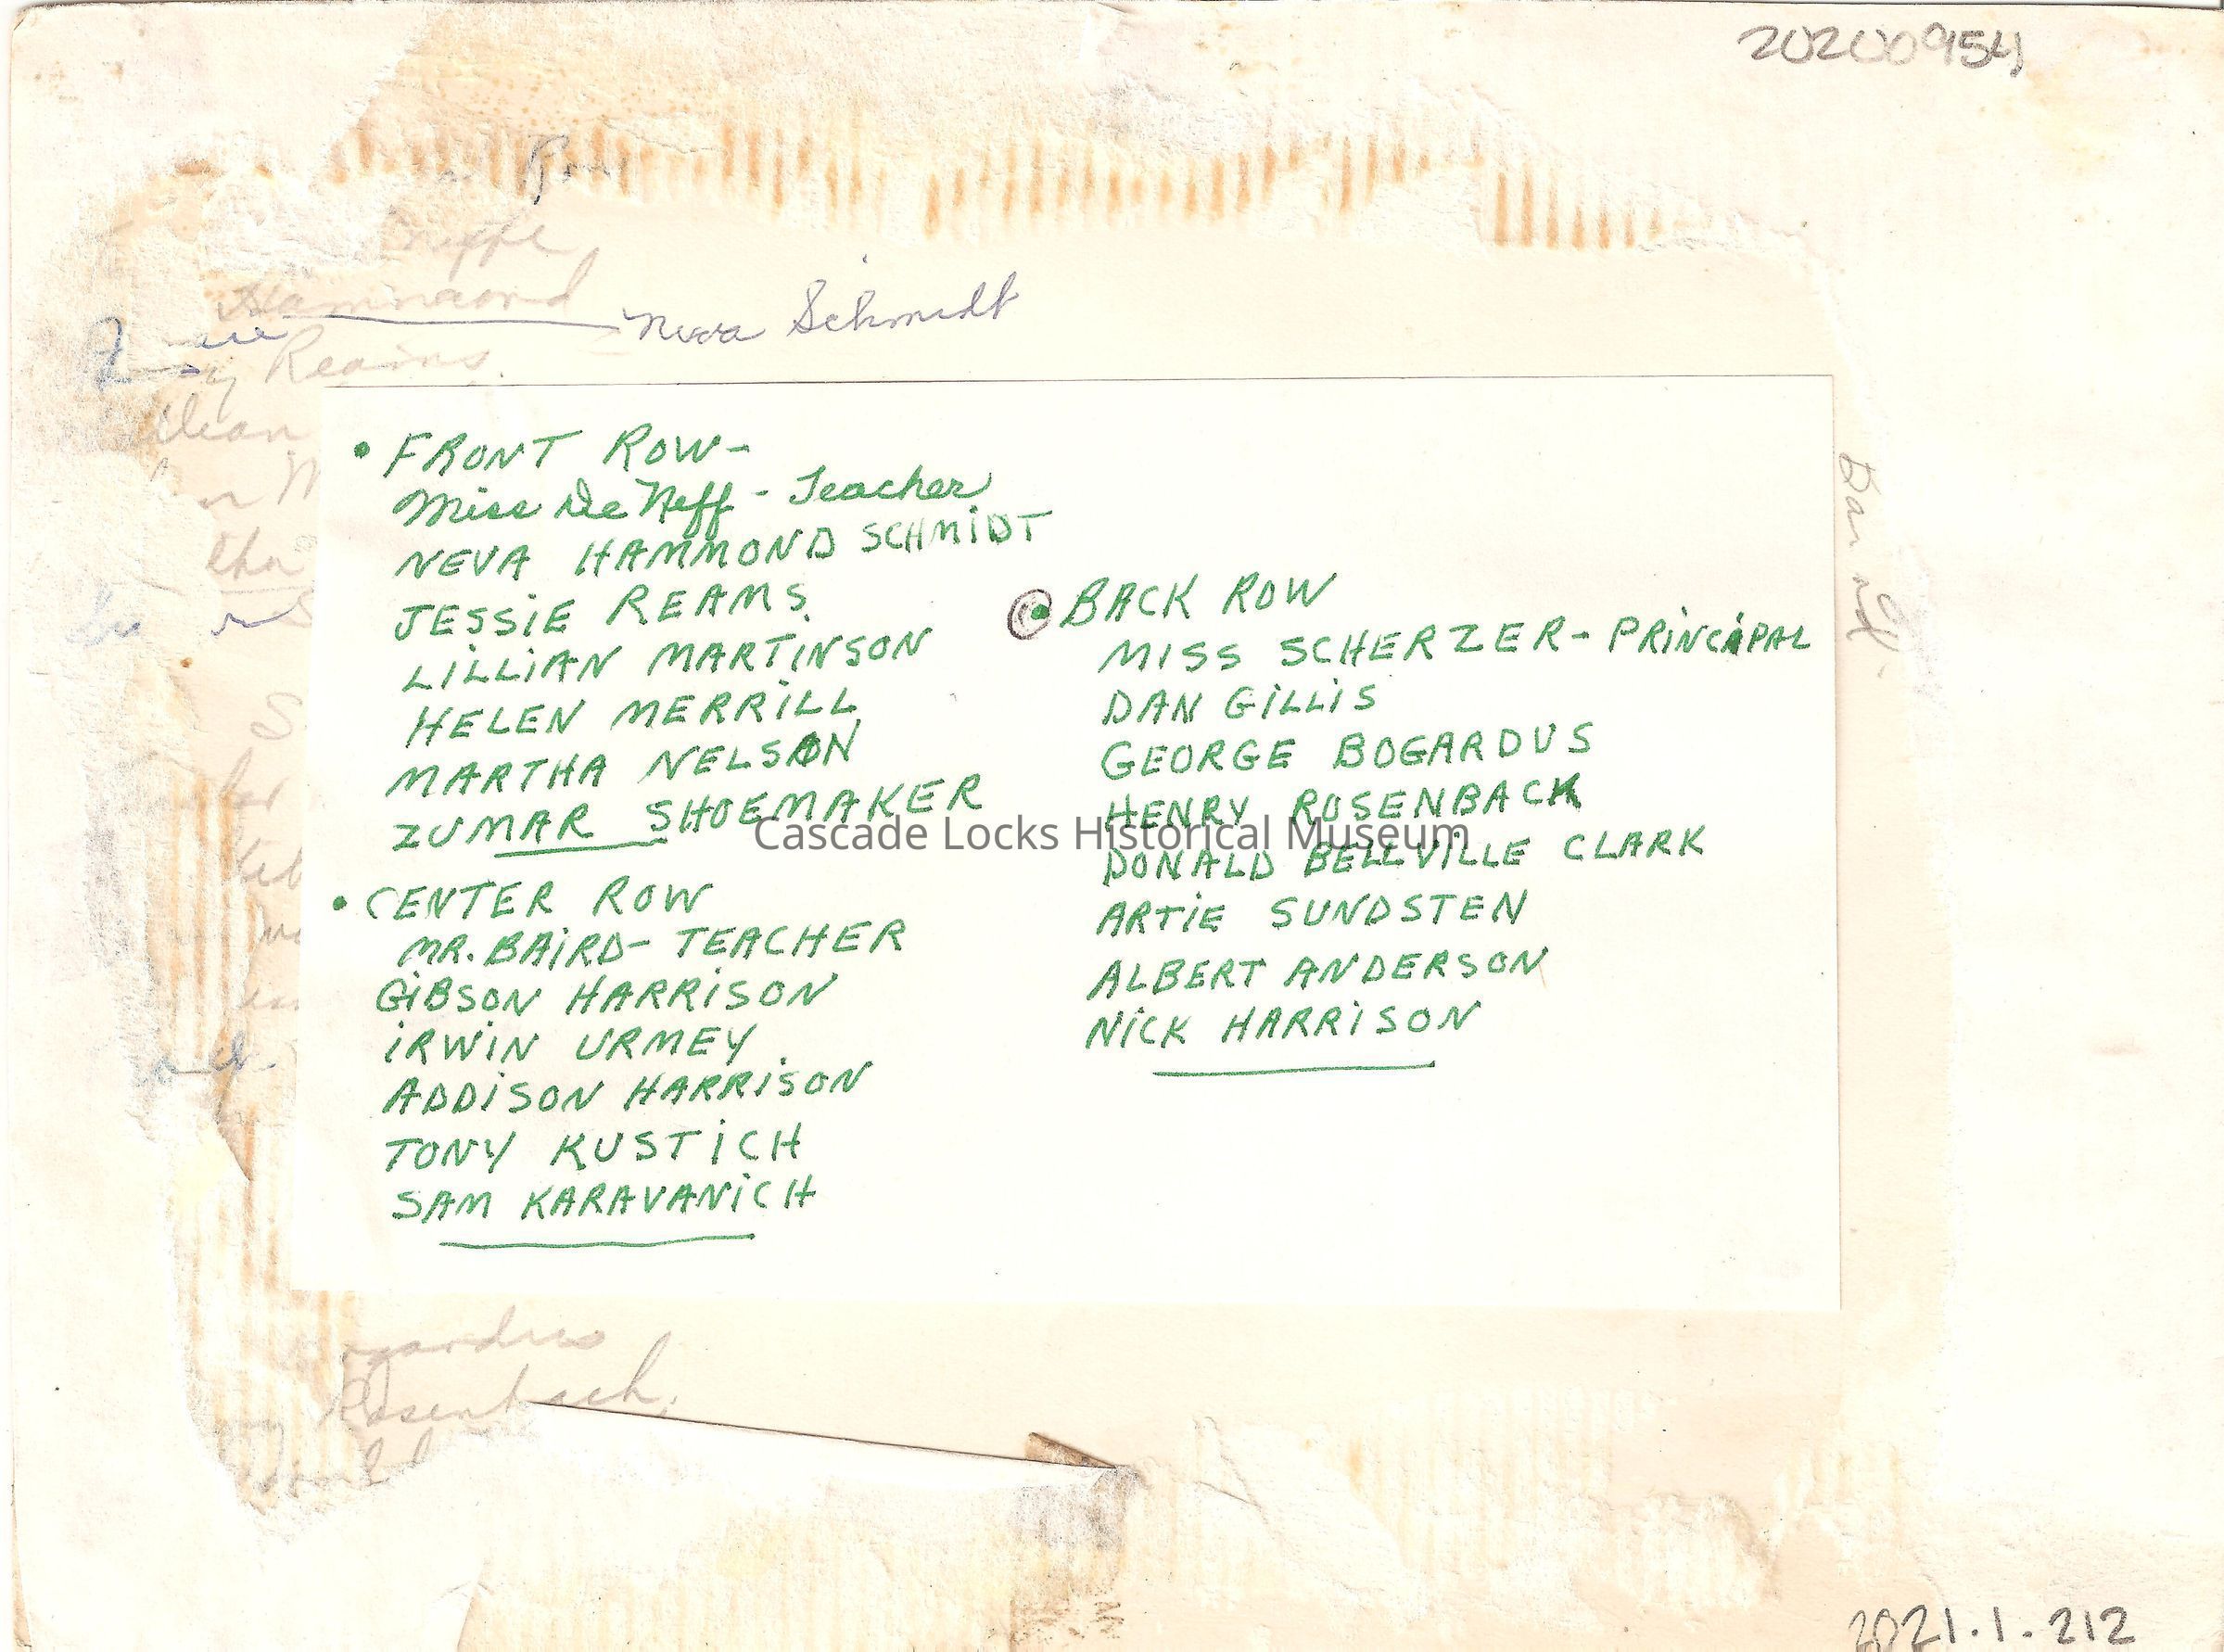 20200954
Row
Hammond
Neva Schmidt
Reams
• FRONT ROW-
Miss De Neff - Teacher
NEVA HAMMOND SCHMIDT
JESSIE REAMS
LILLIAN MARTINSON
HELEN MERRILL
MARTHA NELSON
ZUMAR SHOEMAKER
• CENTER ROW
MR. BAIRD- TEACHER
GIBSON HARRISON
IRWIN URMEY
ADDISON HARRISON
TONY KUSTICH
SAM KARAVANICH
• BACK ROW
MISS SCHERZER- PRINCIPAL
DAN GILLIS
GEORGE BOGARDUS
HENRY ROSENBACK
DONALD BELLVILLE CLARK
ARTIE SUNDSTEN
ALBERT ANDERSON
NICK HARRISON
Cascade Locks Historical Museum
Rosenbach,
2021.1.212